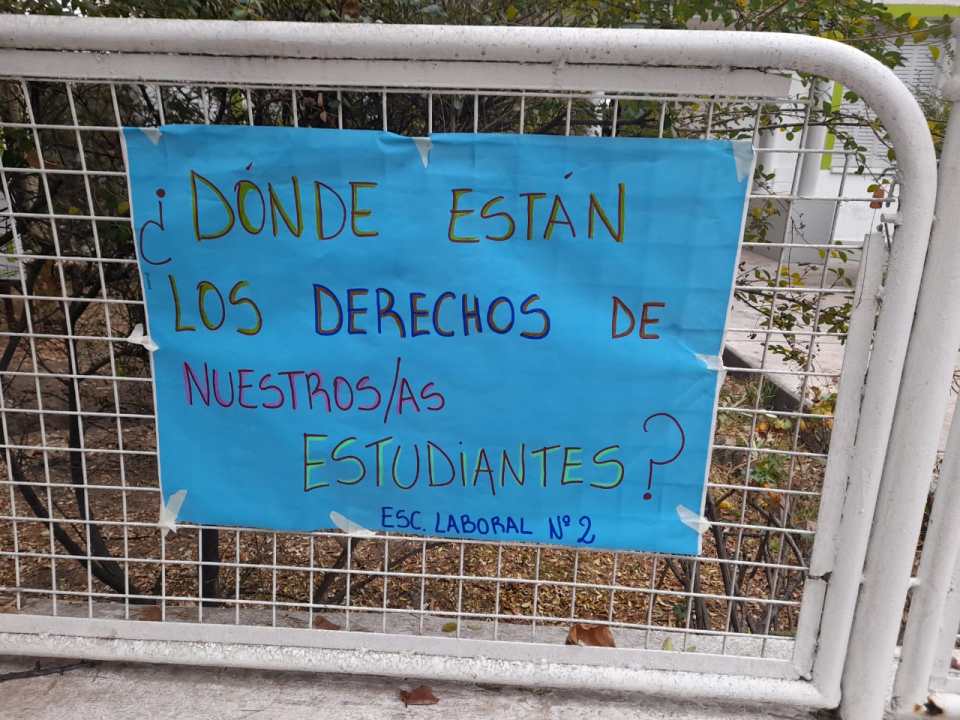 ¿DÓNDE ESTÁN
LOS DERECHOS DE
NUESTROS/AS
ESTUDIANTES?
ESC. LABORAL Nº 2